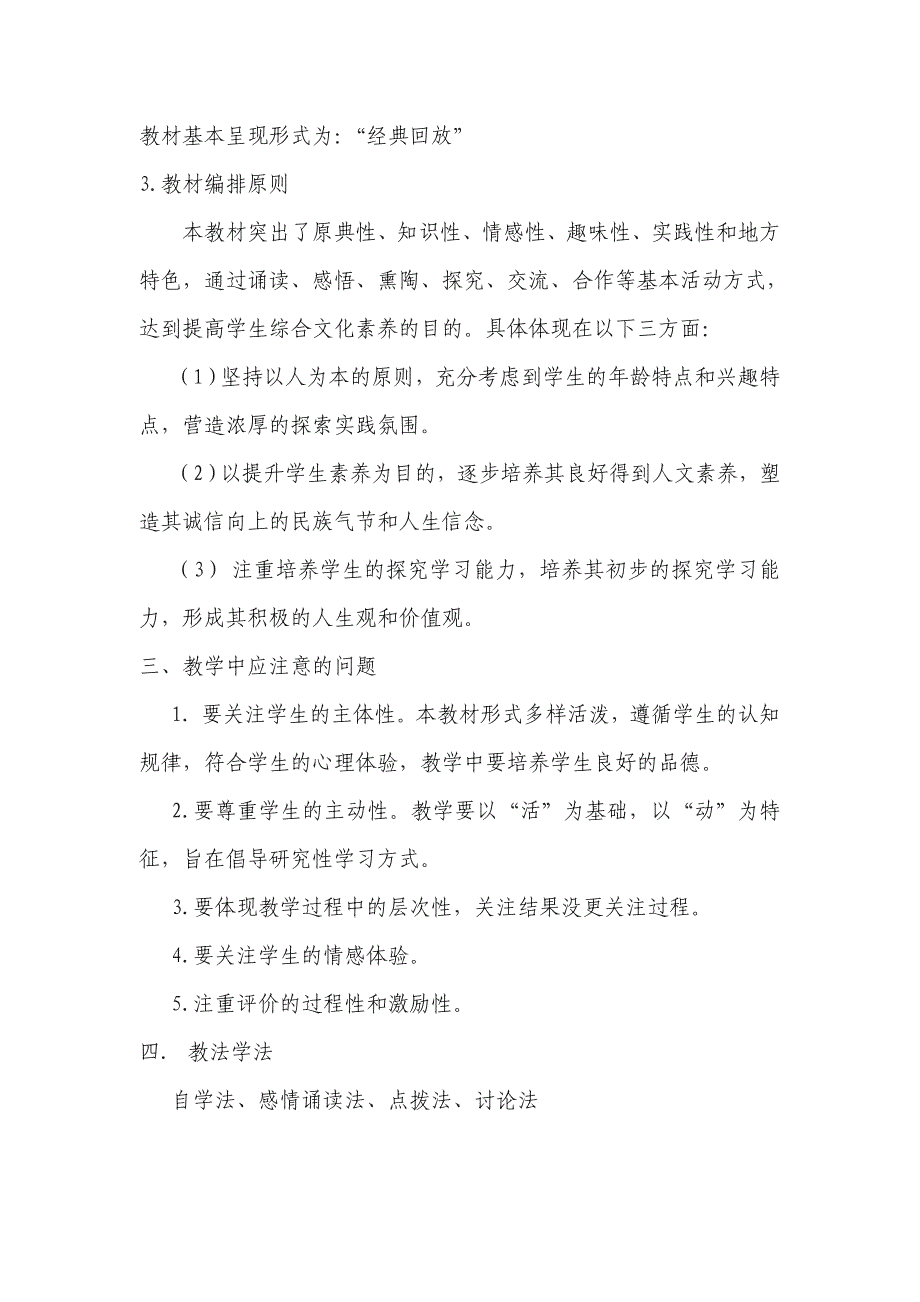 教材基本呈现形式为：“经典回放”
3.教材编排原则
本教材突出了原典性、知识性、情感性、趣味性、实践性和地方
特色，通过诵读、感悟、熏陶、探究、交流、合作等基本活动方式，
达到提高学生综合文化素养的目的。具体体现在以下三方面：
（1）坚持以人为本的原则，充分考虑到学生的年龄特点和兴趣特
点，营造浓厚的探索实践氛围。
（2）以提升学生素养为目的，逐步培养其良好得到人文素养，塑
造其诚信向上的民族气节和人生信念。
（3） 注重培养学生的探究学习能力，培养其初步的探究学习能
力，形成其积极的人生观和价值观。
三、教学中应注意的问题
1. 要关注学生的主体性。本教材形式多样活泼，遵循学生的认知
规律，符合学生的心理体验，教学中要培养学生良好的品德。
2.要尊重学生的主动性。教学要以“活”为基础，以“动”为特
征，旨在倡导研究性学习方式。
3.要体现教学过程中的层次性，关注结果没更关注过程。
4.要关注学生的情感体验。
5.注重评价的过程性和激励性。
四. 教法学法
自学法、感情诵读法、点拨法、讨论法